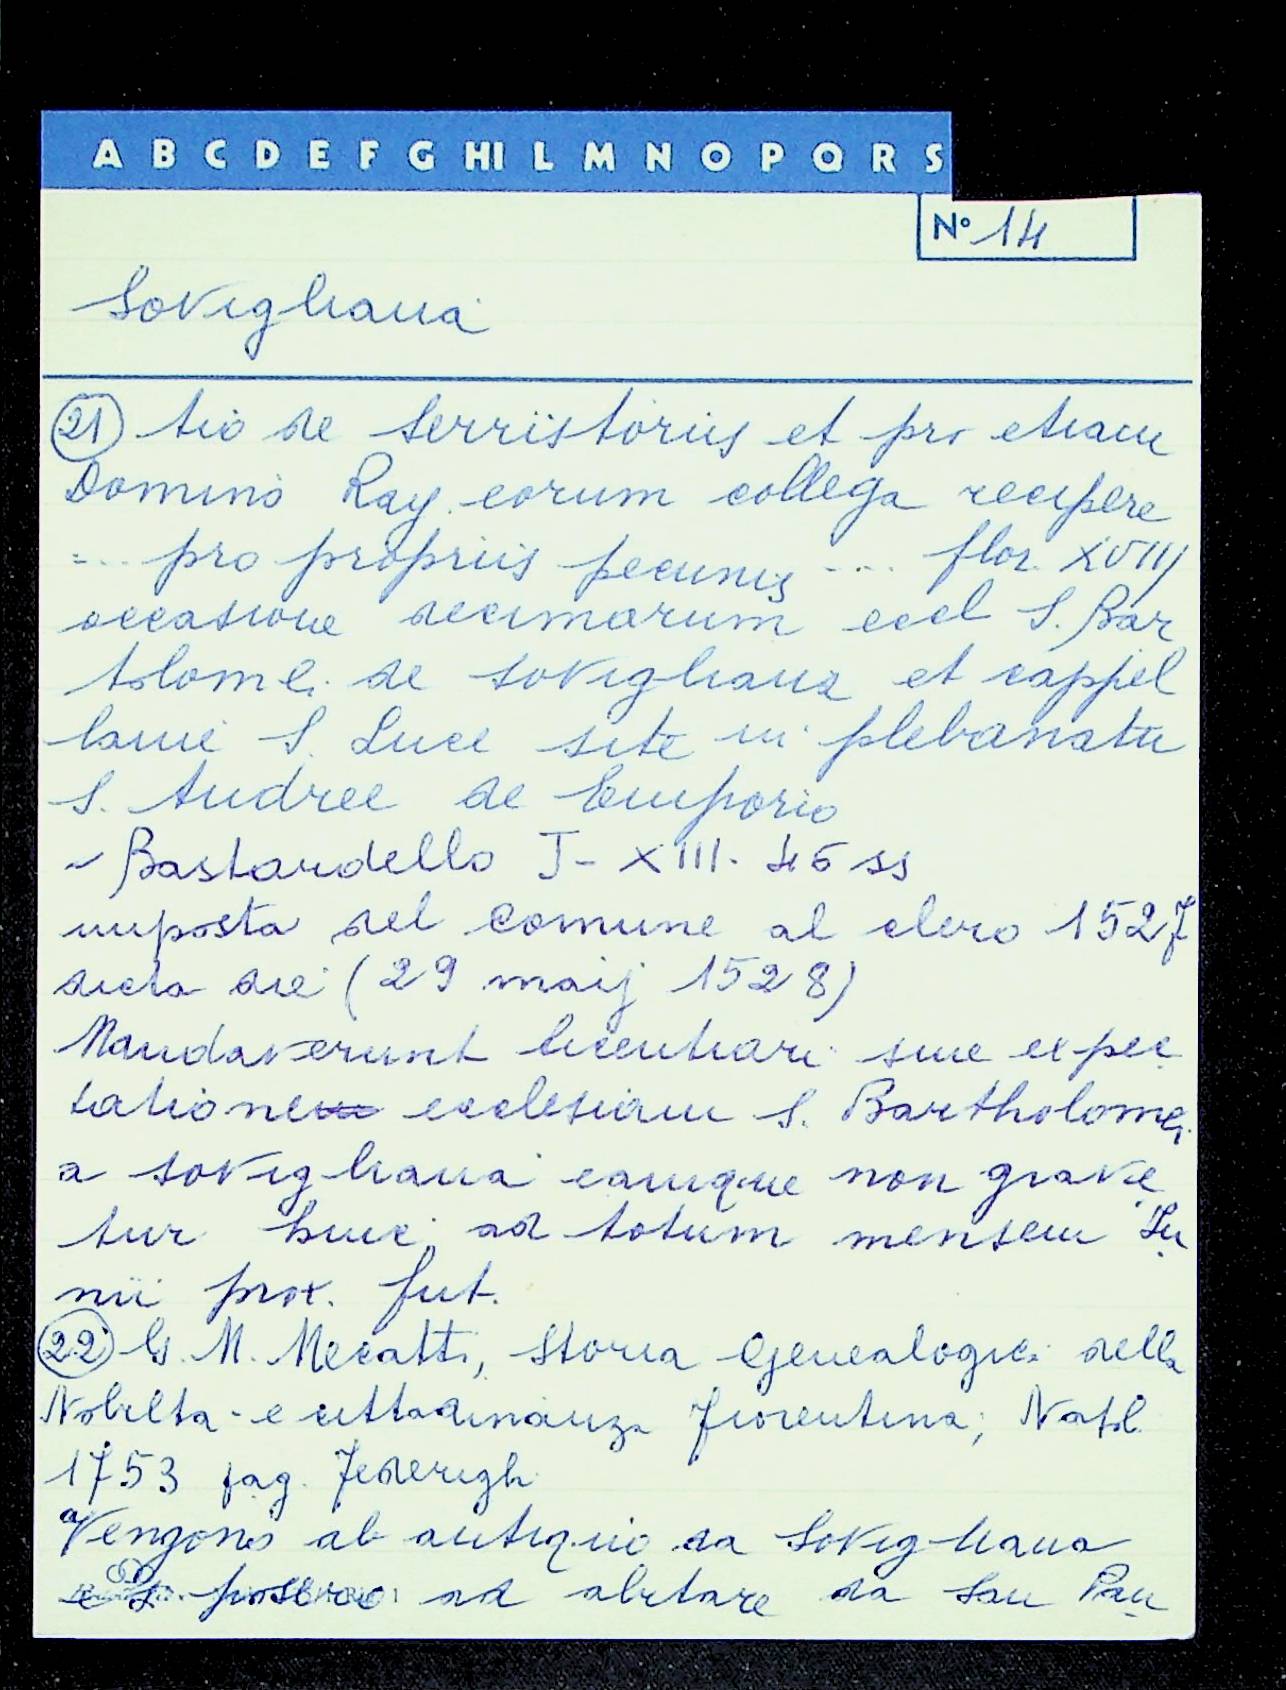 A B C D E F G HI L M N O P Q R S
N° 14
Sovigliana
21 tio de Serristoriis et pro etiam
Domino Ray. eorum collega recipere
... pro propriis pecuniis .... flor. XVIII
occasione decimarum eccl S. Bar
tolomei de Sovigliana et cappel
lanie S. Luce site in plebanatu
S. Andree de Emporio
~ Bastardello J- XIII. 46 ss
imposta del Comune al clero 1527
dicta die (29 maij 1528)
Mandaverunt licentiari sine expec
tatione ecclesiam S. Bartholomei
a Sovigliana eamque non grave
tur hinc ad totum mensem Iu
nii prox. fut.
22 G. M. Mecatti, Storia Genealogica della
Nobiltà e cittadinanza Fiorentina, Napol.
1753 pag. Federighi
"Vengono ab antiquo da Sovigliana
e si posero ad abitare da San Pan